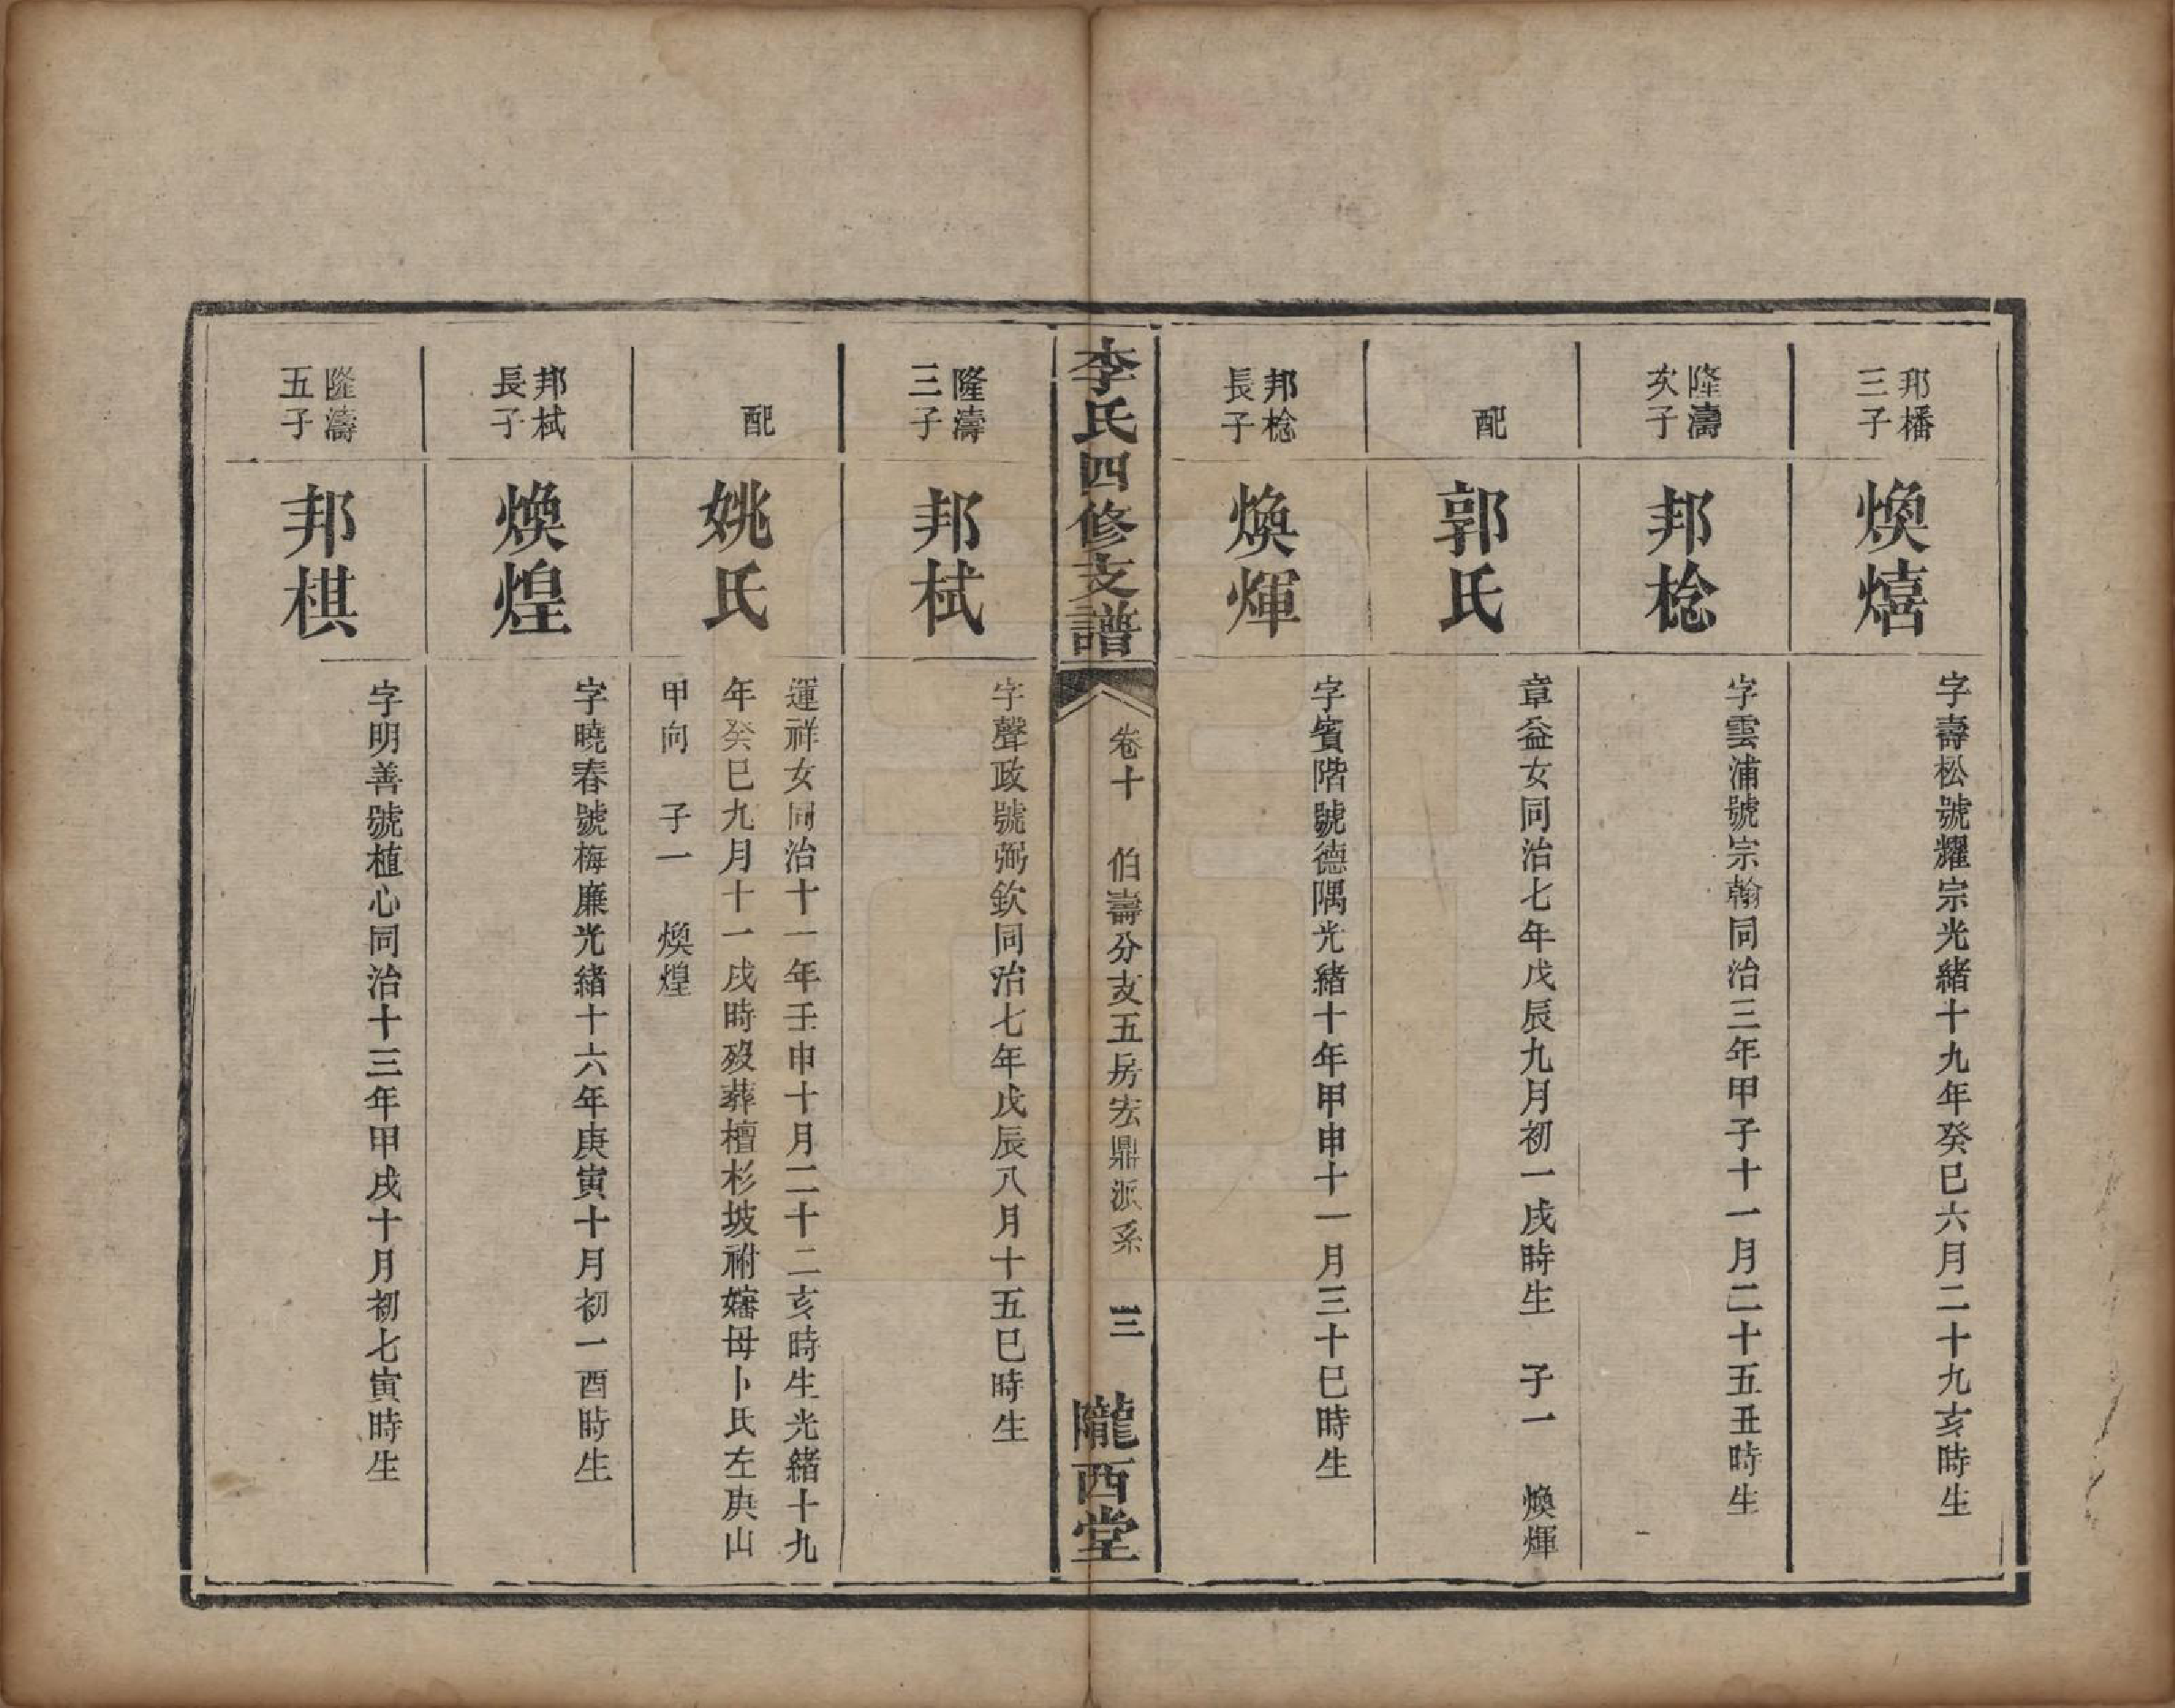 邦橎
三子
煥熺
字壽松號耀宗光緒十九年癸巳六月二十九亥時生
隆濤
次子
邦棯
字雲浦號宗翰同治三年甲子十一月二十五丑時生
配
郭氏
章益女同治七年戊辰九月初一戌時生 子一 煥煇
邦棯
長子
煥煇
字賓階號德隅光緒十年甲申十一月三十巳時生
李氏四修支譜
卷十 伯壽分支五房宏鼎派系 三
隴西堂
隆濤
三子
邦栻
字聲政號弼欽同治七年戊辰八月十五巳時生
配
姚氏
運祥女同治十一年壬申十月二十二亥時生光緒十九
年癸巳九月十一戌時歿葬檀杉坡祔嬸母卜氏左庚山
甲向 子一 煥煌
邦栻
長子
煥煌
字曉春號梅廉光緒十六年庚寅十月初一酉時生
隆濤
五子
邦棋
字明善號植心同治十三年甲戌十月初七寅時生